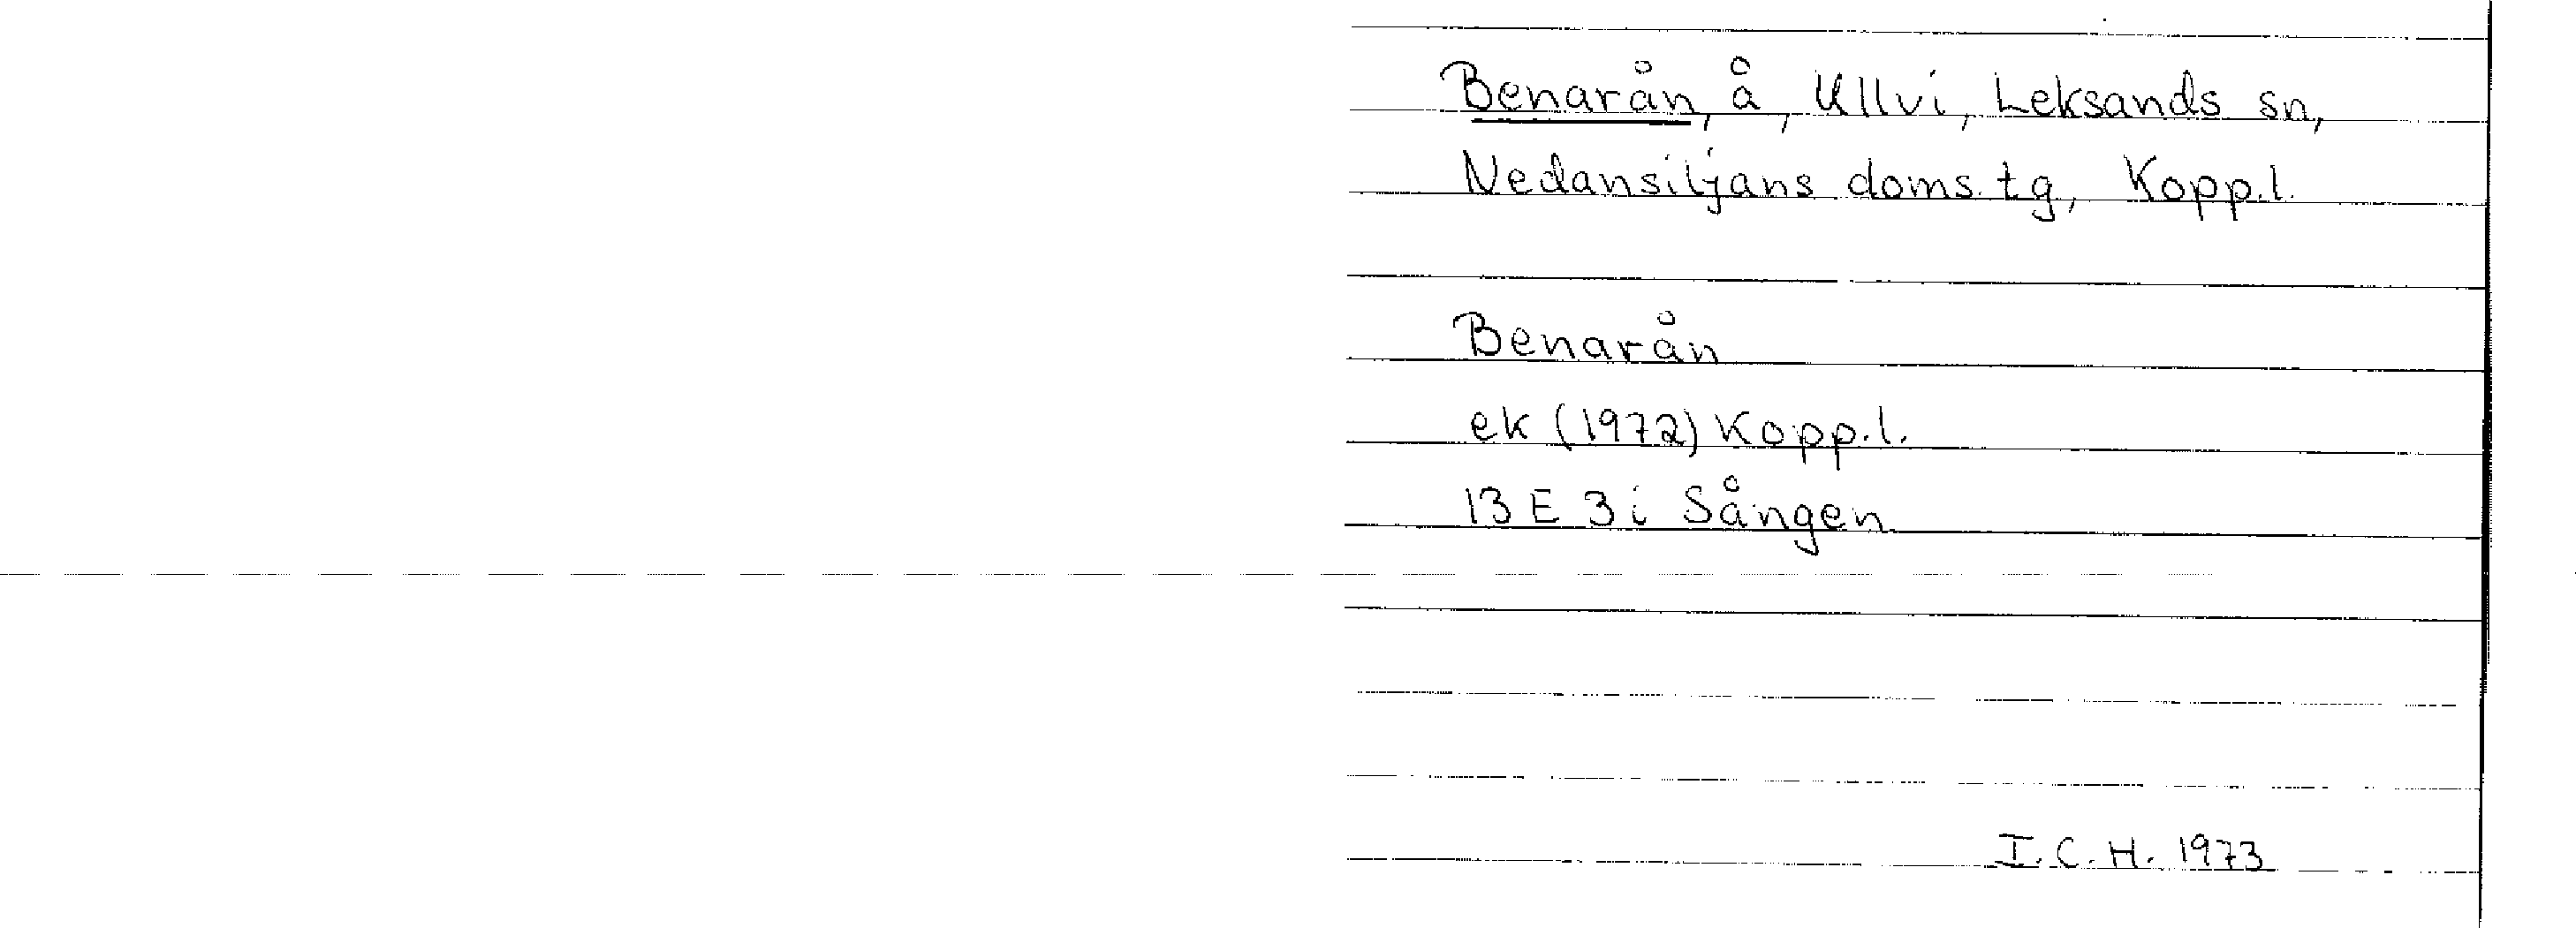 Benarån, å, Ullvi, Leksands sn,
Nedansiljans doms.tg, Kopp.l.
Benarån
ek (1972) Kopp.l.
13 E 3 i Sången
I. C. H. 1973